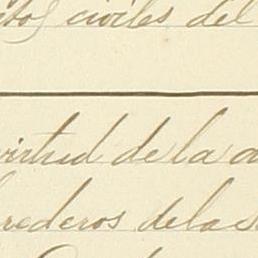 civiles del
virtud de la
rederos de la s